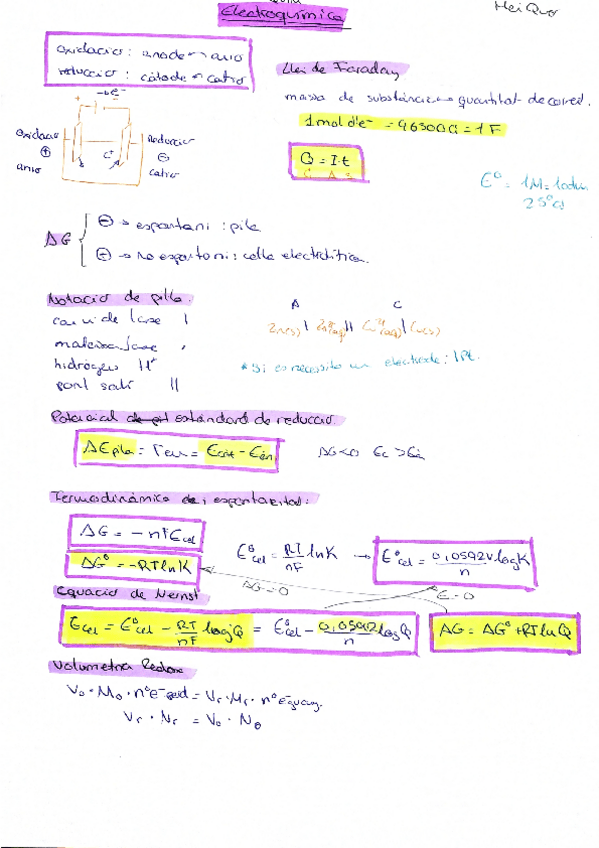 Electroquímica
Mei Quo
oxidació: ànode → anió
reducció: càtode → catió
Llei de Faraday
massa de substància → quantitat de corrent.
1 mol d'e⁻ = 96500 C = 1 F
Q = I·t
C A s
E° = 1M = 1atm
25°C
Oxidació
⊕
anió
Reducció
⊖
catió
ΔG
⊖ → espontani: pila
⊕ → no espontani: cel·la electrolítica.
Notació de pila.
canvi de fase |
mateixa fase ,
hidrogen H⁺
pont salí ||
A C
Zn(s) | Zn²⁺(aq) || Cu²⁺(aq) | Cu(s)
* Si es necessita un elèctrode: | Pt.
Potencial estàndard de reducció
ΔEpila = Fem = Ecat - Eàn
ΔG<0 Ec > Eà
Termodinàmica i espontaneïtat:
ΔG = -nFEcel
ΔG° = -RT lnK
E°cel = RT/nF lnK → E°cel = 0,0592V/n logK
ΔG=0
E=0
Equació de Nernst
Ecel = E°cel - RT/nF log Q = E°cel - 0,0592/n log Q
ΔG = ΔG° + RT ln Q
Volumetria Redox
Vo · Mo · nº e⁻ = Vr · Mr · nº e⁻
Vr · Nr = Vo · No